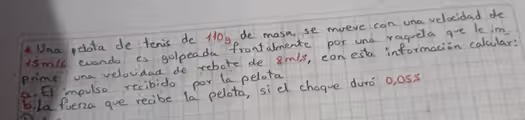 * Una pelota de tenis de 110g de masa, se mueve con una velocidad de
15m/s cuando es golpeada frontalmente por una raqueta que le im
prime una velocidad de rebote de 8m/s, con esta información calcular:
a. El impulso recibido por la pelota
b. La fuerza que recibe la pelota, si el choque duró 0,05s